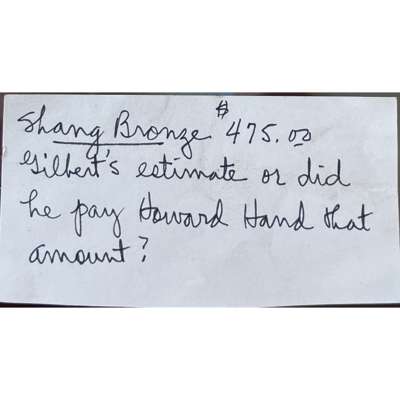 Shang Bronze $475.00
Gilbert's estimate or did
he pay Howard Hand that
amount?